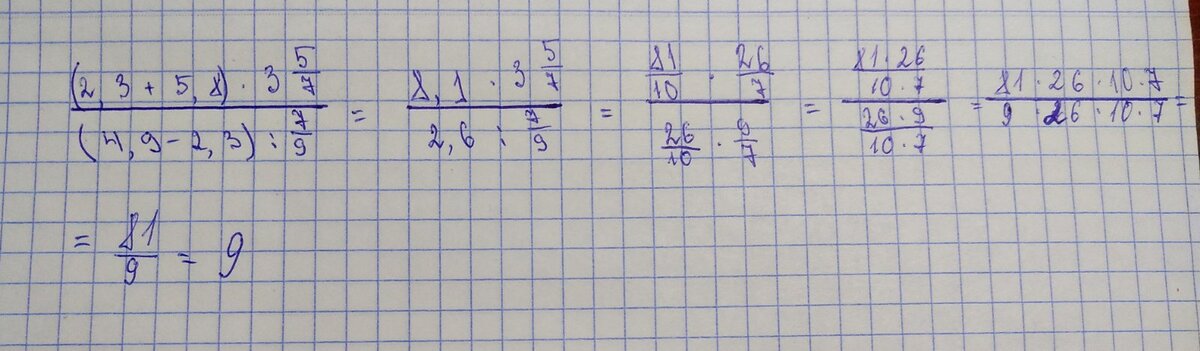 (2,3 + 5,8) · 3 5/7 / (4,9 - 2,3) : 7/9 = 8,1 · 3 5/7 / 2,6 : 7/9 = 81/10 · 26/7 / 26/10 · 9/7 = 81 · 26 / 10 · 7 / 26 · 9 / 10 · 7 = 81 · 26 · 10 · 7 / 9 · 26 · 10 · 7 =
= 81/9 = 9